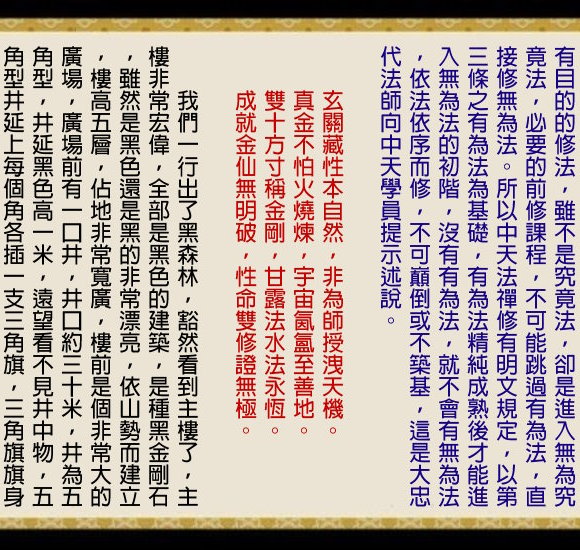 有目的的修法，雖不是究竟法，卻是進入無為究
竟法，必要的前修課程，不可能跳過有為法，直
接修無為法。所以中天法禪修有明文規定，以第
三條之有為法為基礎，有為法精純成熟後才能進
入無為法的初階，沒有有為法，就不會有無為法
，依法依序而修，不可巔倒或不築基，這是大忠
代法師向中天學員提示述說。
玄關藏性本自然，非為師授洩天機。
真金不怕火燒煉，宇宙氤氳至善地。
雙十方寸稱金剛，甘露法水法永恆。
成就金仙無明破，性命雙修證無極。
我們一行出了黑森林，豁然看到主樓了，主
樓非常宏偉，全部是黑色的建築，是種黑金剛石
，雖然是黑色還是黑的非常漂亮，依山勢而建立
，樓高五層，佔地非常寬廣，樓前是個非常大的
廣場，廣場前有一口井，井口約三十米，井為五
角型，井延黑色高一米，遠望看不見井中物，五
角型井延上每個角各插一支三角旗，三角旗旗身